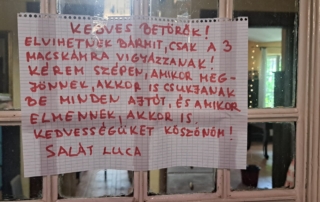 KEDVES BETÖRŐK!
ELVIHETNEK BÁRMIT, CSAK A 3
MACSKÁMRA VIGYÁZZANAK!
KÉREM SZÉPEN, AMIKOR MEG-
JÖNNEK, AKKOR IS CSUKJANAK
BE MINDEN AJTÓT, ÉS AMIKOR
ELMENNEK, AKKOR IS.
KEDVESSÉGÜKET KÖSZÖNÖM!
SALÁT LUCA